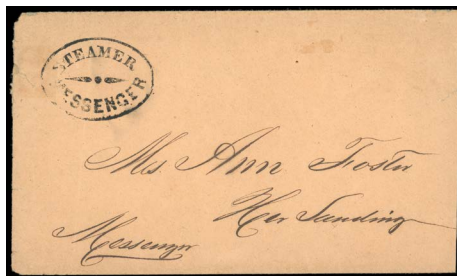 STEAMER
MESSENGER
Mrs. Ann Foster
Her Landing
Messenger